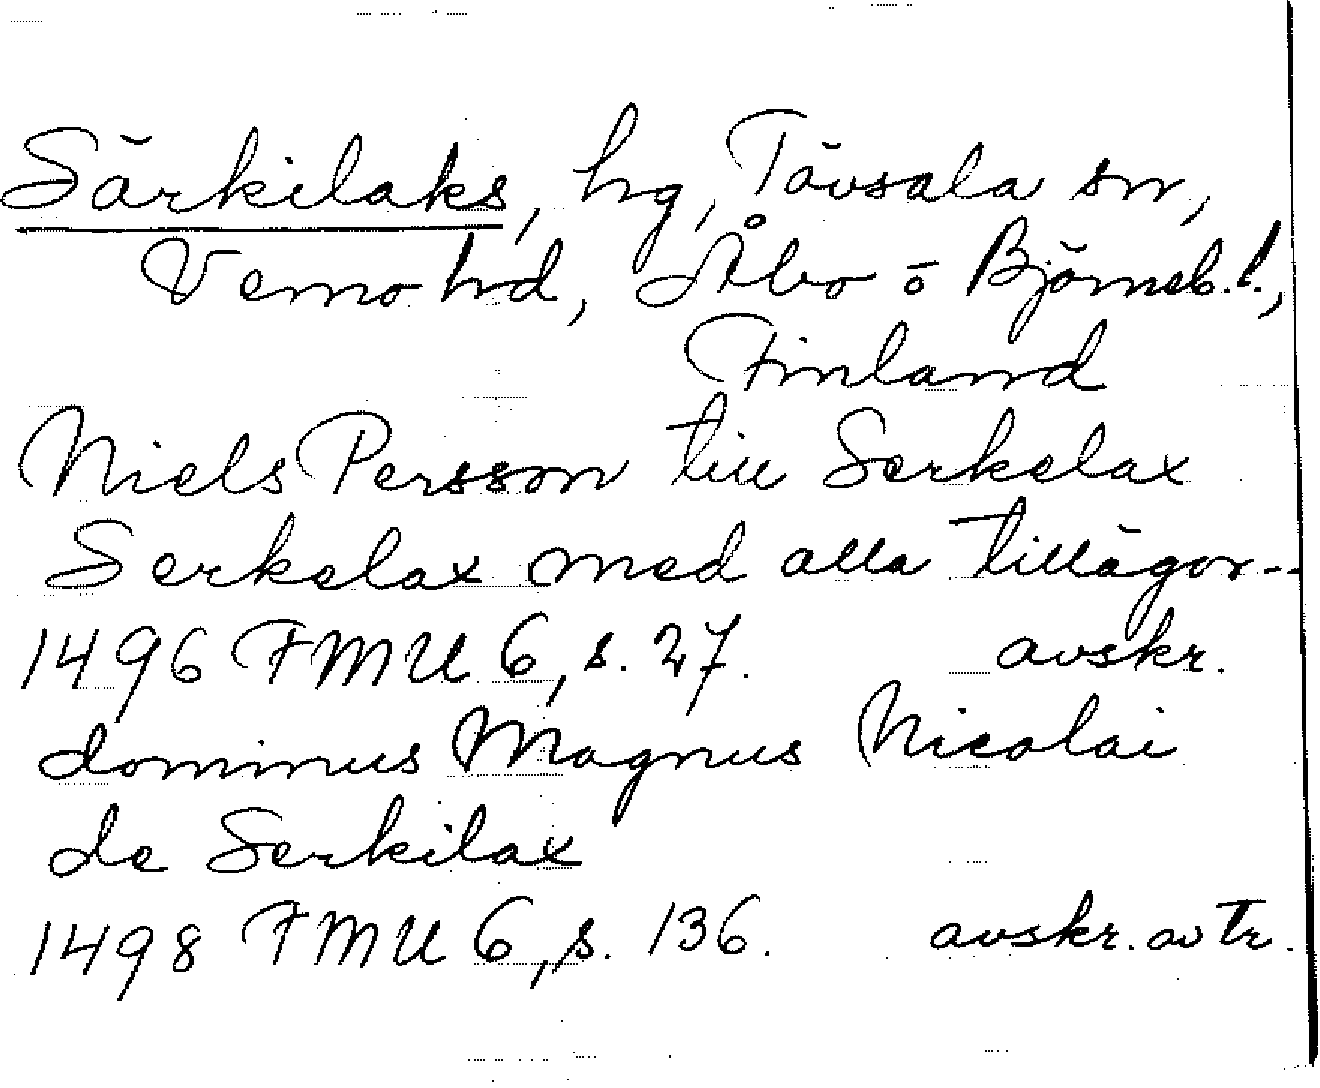 Särkilaks, hg, Tövsala sn,
Vemo hd, Åbo o Björneb. l.,
Finland
Niels Persson till Serkelax
Serkelax med alla tillägor--
1496 FMU 6, s. 27. avskr.
dominus Magnus Nicolai
de Serkilax
1498 FMU 6, s. 136. avskr. av tr.